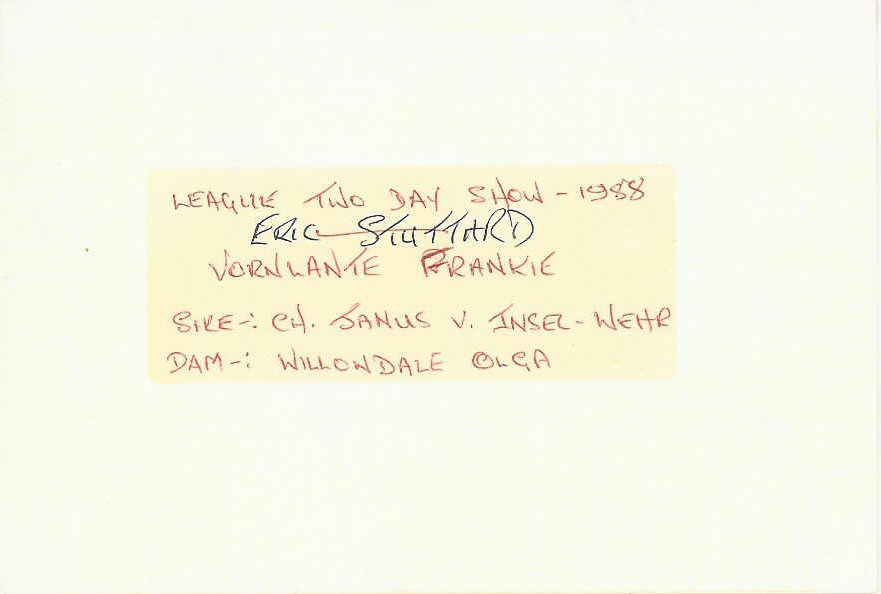 LEAGUE TWO DAY SHOW - 1988
ERIC STUTTARD
VORNLANTE FRANKIE
SIRE-: CH. JANUS V. INSEL-WEHR
DAM-: WILLOWDALE OLGA